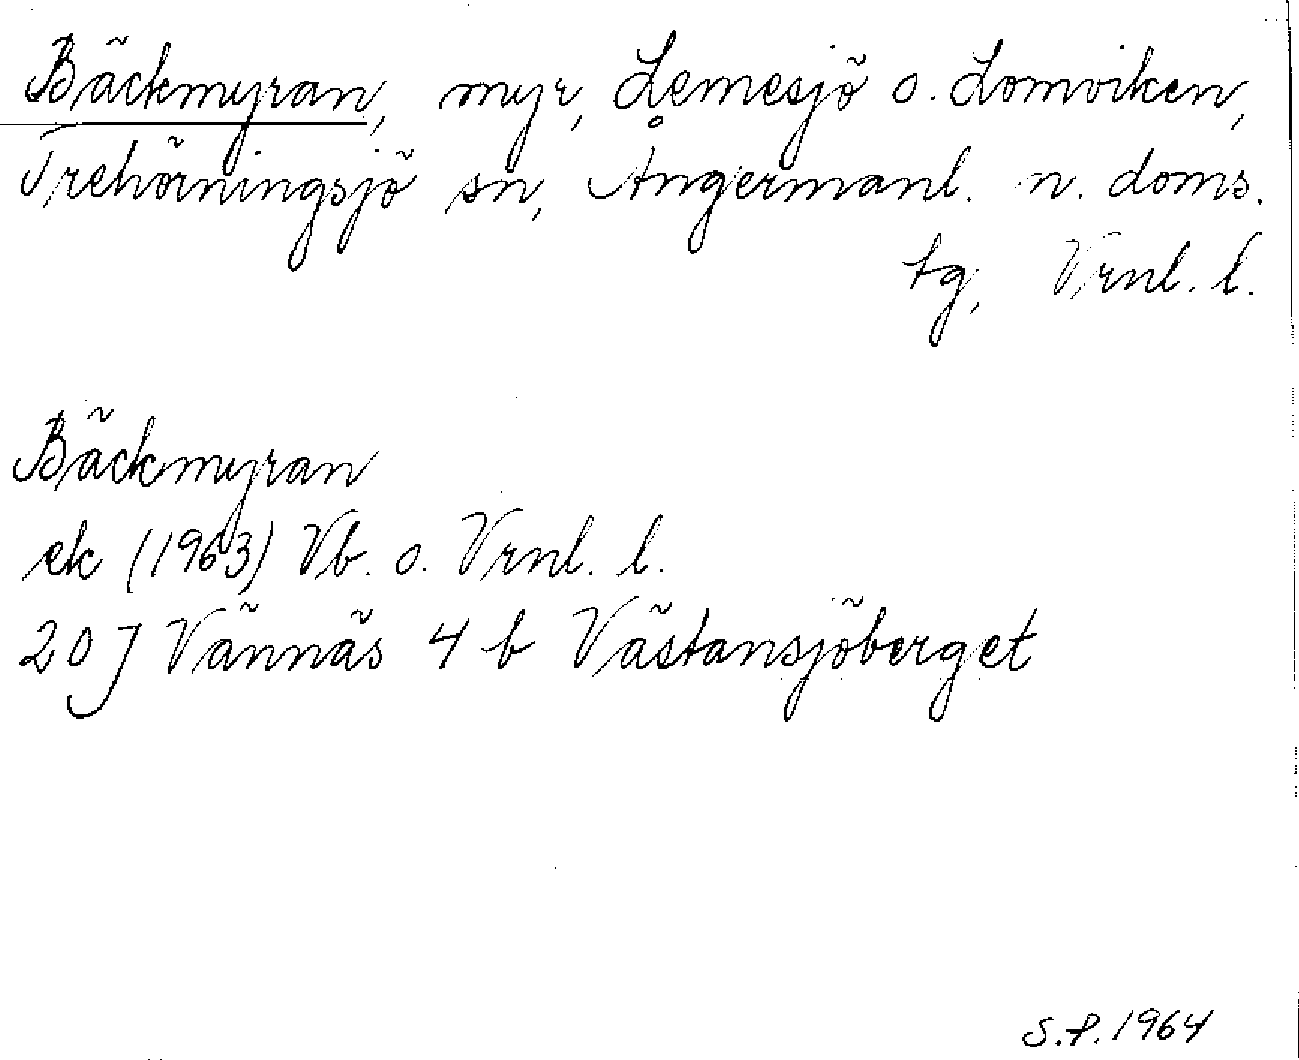 Bäckmyran, myr, Lemesjö o. Lomviken,
Trehörningsjö sn, Ångermanl. n. doms.
tg, Vrnl. l.
Bäckmyran
ek (1963) Vb. o. Vrnl. l.
20 J Vännäs 4 b Västansjöberget
S.P. 1964